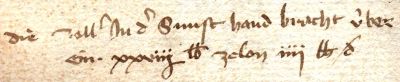 die zall In d Sunst hand bracht vber
ein xxviiij lb zelon iiij lb d